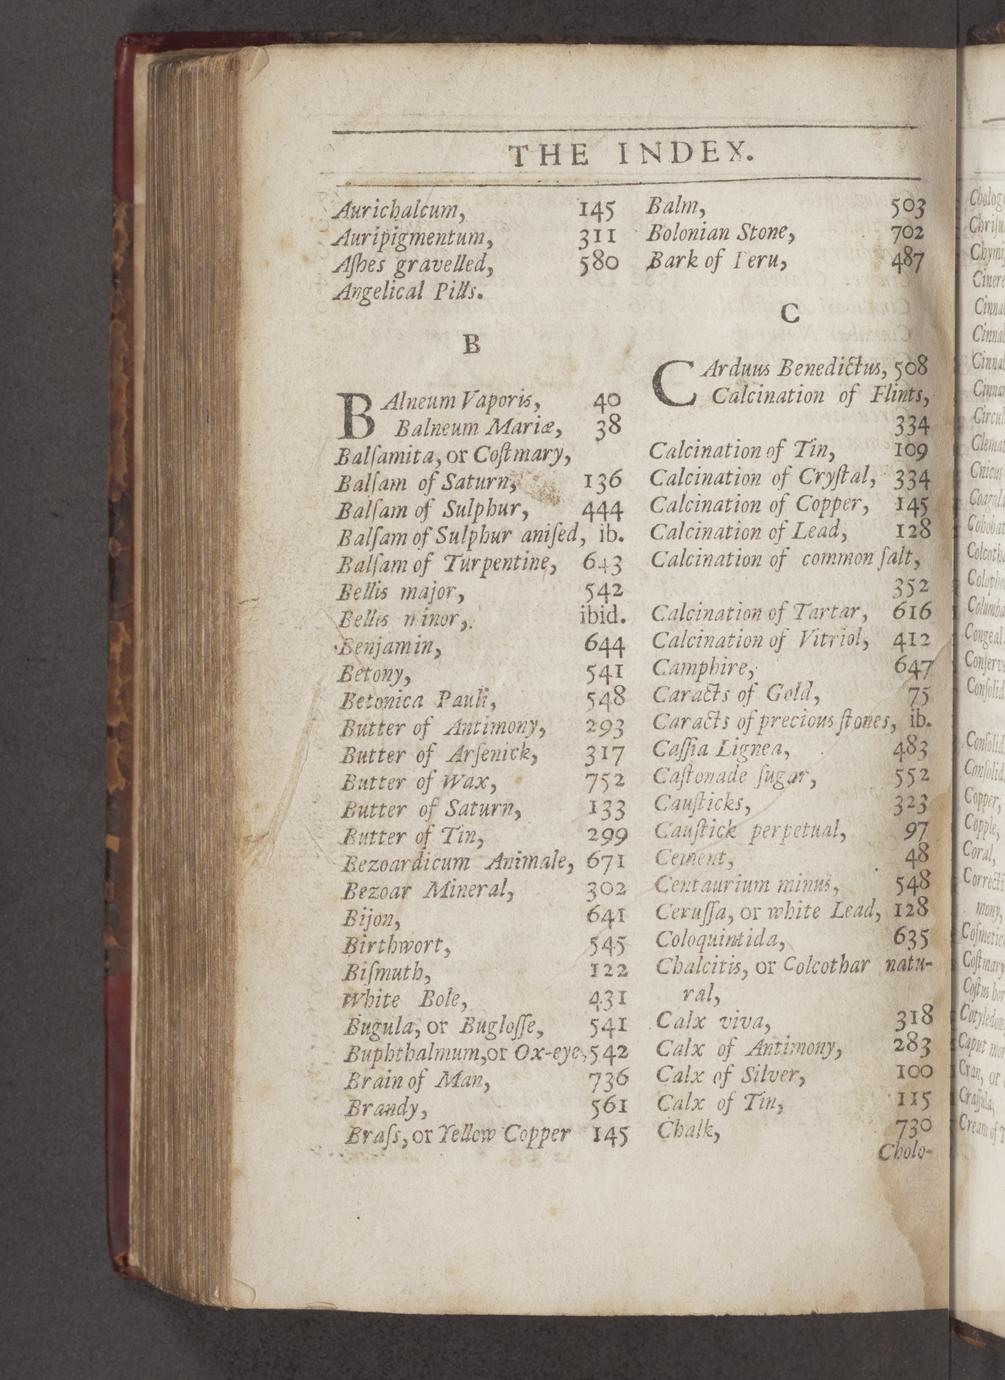 THE INDEX.
Aurichalcum, 145
Auripigmentum, 311
Aſhes gravelled, 580
Angelical Pills.
B
BAlneum Vaporis, 40
Balneum Mariæ, 38
Balſamita, or Coſtmary,
Balſam of Saturn, 136
Balſam of Sulphur, 444
Balſam of Sulphur aniſed, ib.
Balſam of Turpentine, 643
Bellis major, 542
Bellis minor, ibid.
Benjamin, 644
Betony, 541
Betonica Pauli, 548
Butter of Antimony, 293
Butter of Arſenick, 317
Butter of Wax, 752
Butter of Saturn, 133
Butter of Tin, 299
Bezoardicum Animale, 671
Bezoar Mineral, 302
Bijon, 641
Birthwort, 545
Biſmuth, 122
White Bole, 431
Bugula, or Bugloſſe, 541
Buphthalmum, or Ox-eye, 542
Brain of Man, 736
Brandy, 561
Braſs, or Yellow Copper 145
Balm, 503
Bolonian Stone, 702
Bark of Peru, 487
C
CArduus Benedictus, 508
Calcination of Flints,
334
Calcination of Tin, 109
Calcination of Cryſtal, 334
Calcination of Copper, 145
Calcination of Lead, 128
Calcination of common ſalt,
352
Calcination of Tartar, 616
Calcination of Vitriol, 412
Camphire, 647
Caracts of Gold, 75
Caracts of precious ſtones, ib.
Caſſia Lignea, 483
Caſtonade ſugar, 552
Cauſticks, 323
Cauſtick perpetual, 97
Cement, 48
Centaurium minus, 548
Ceruſſa, or white Lead, 128
Coloquintida, 635
Chalcitis, or Colcothar natu-
ral,
Calx viva, 318
Calx of Antimony, 283
Calx of Silver, 100
Calx of Tin, 115
Chalk, 730
Cholo-